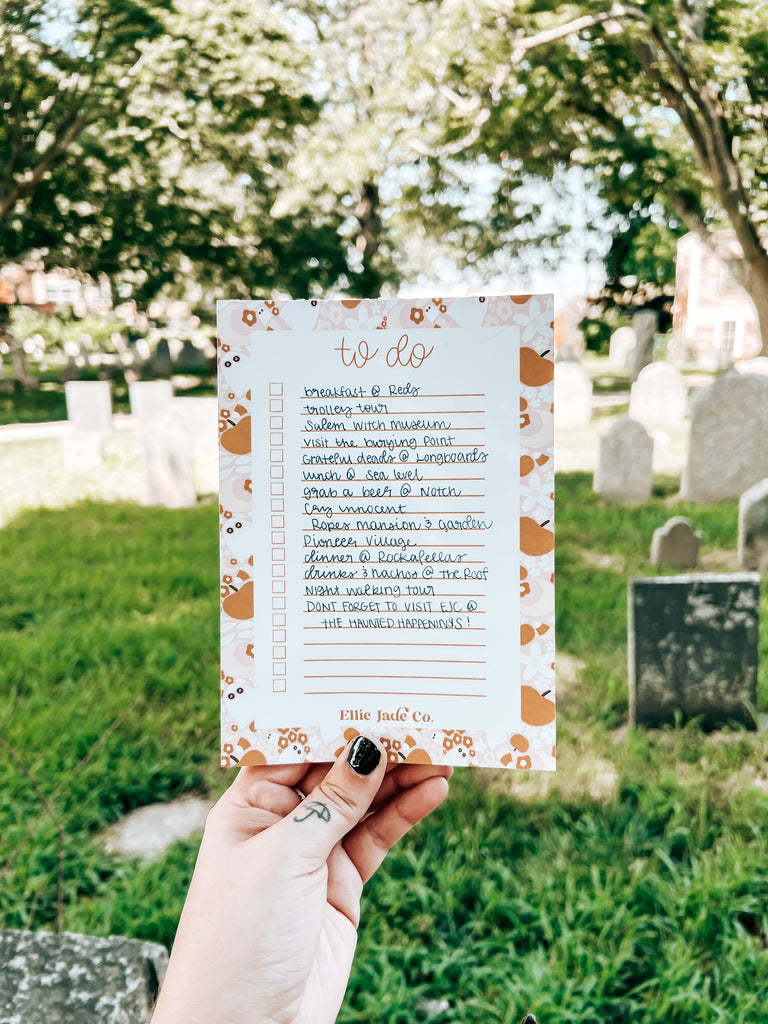 to do
breakfast @ Reds
trolley tour
Salem Witch Museum
visit the burying point
Grateful deads @ Longboards
lunch @ Sea level
grab a beer @ Notch
Cry Innocent
Ropes mansion & garden
Pioneer Village
dinner @ Rockafellas
drinks & nachos @ The Roof
Night walking tour
DONT FORGET TO VISIT EJC @
THE HAUNTED HAPPENINGS!
Ellie Jade Co.